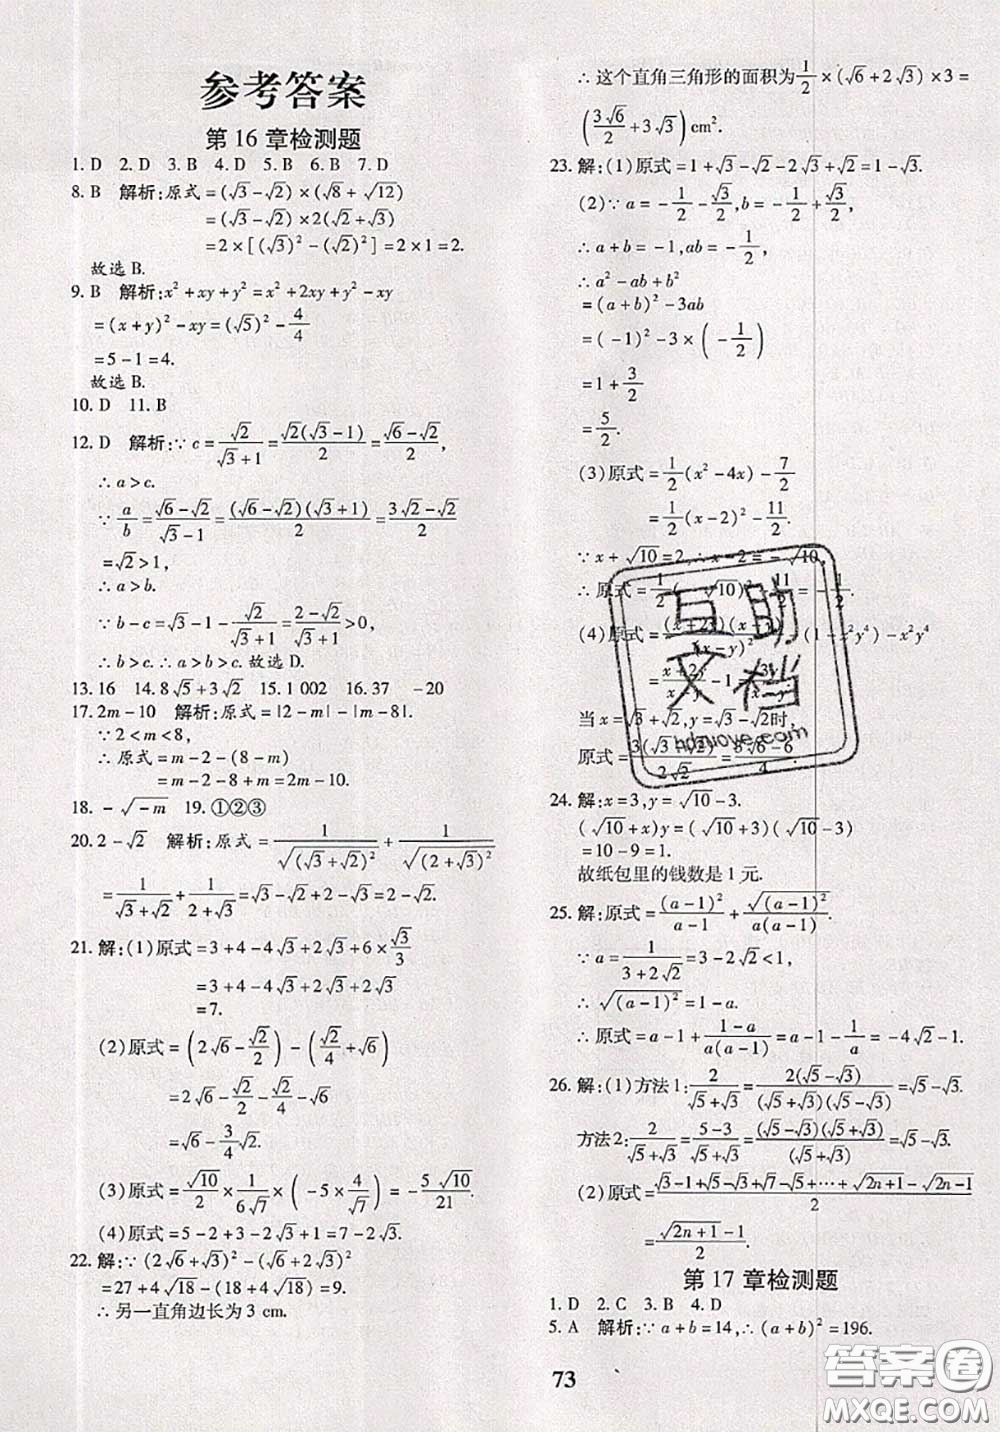 参考答案
第 16 章检测题
1. D 2. D 3. B 4. D 5. B 6. B 7. D
8. B 解析:原式=(√3-√2)×(√8+√12)
=(√3-√2)×2(√2+√3)
=2×[(√3)²-(√2)²]=2×1=2.
故选 B.
9. B 解析:x²+xy+y²=x²+2xy+y²-xy
=(x+y)²-xy=(√5)²-4/4
=5-1=4.
故选 B.
10. D 11. B
12. D 解析:∵c=√2/(√3+1)=√2(√3-1)/2=(√6-√2)/2,
∴a>c.
∵a/b=(√6-√2)/(√3-1)=(√6-√2)(√3+1)/2=(3√2-√2)/2
=√2>1,
∴a>b.
∵b-c=√3-1-√2/(√3+1)=(2-√2)/(√3+1)>0,
∴b>c.∴a>b>c.故选 D.
13. 16 14. 8√5+3√2 15. 1 002 16. 37 -20
17. 2m-10 解析:原式=|2-m|-|m-8|.
∵2<m<8,
∴原式=m-2-(8-m)
=m-2-8+m=2m-10.
18. -√(-m) 19. ①②③
20. 2-√2 解析:原式=1/√((√3+√2)²)+1/√((2+√3)²)
=1/(√3+√2)+1/(2+√3)=√3-√2+2-√3=2-√2.
21. 解:(1)原式=3+4-4√3+2√3+6×√3/3
=3+4-4√3+2√3+2√3
=7.
(2)原式=(2√6-√2/2)-(√2/4+√6)
=2√6-√2/2-√2/4-√6
=√6-3/4√2.
(3)原式=√10/2×1/(6√7)×(-5×4/√7)=-5√10/21.
(4)原式=5-2+3-2√3+1=7-2√3.
22. 解:∵(2√6+√3)²-(√6+2√3)²
=27+4√18-(18+4√18)=9.
∴另一直角边长为 3 cm.
∴这个直角三角形的面积为1/2×(√6+2√3)×3=
(3√6/2+3√3)cm².
23. 解:(1)原式=1+√3-√2-2√3+√2=1-√3.
(2)∵a=-1/2-√3/2,b=-1/2+√3/2,
∴a+b=-1,ab=-1/2.
∴a²-ab+b²
=(a+b)²-3ab
=(-1)²-3×(-1/2)
=1+3/2
=5/2.
(3)原式=1/2(x²-4x)-7/2
=1/2(x-2)²-11/2.
∵x+√10=2,∴x-2=-√10,
∴原式=1/2(-√10)²-11/2=-1/2.
(4)原式=(x+2y)(x-y)/(x-y)² (1-x²y⁴)-x²y⁴
=(x+2y)/(x-y)-1=3y/(x-y).
当x=√3+√2,y=√3-√2时,
原式=3(√3-√2)/(2√2)=(3√6-6)/4.
24. 解:x=3,y=√10-3.
(√10+x)y=(√10+3)(√10-3)
=10-9=1.
故纸包里的钱数是 1 元.
25. 解:原式=(a-1)²/(a-1)+√((a-1)²)/(a(a-1)).
∵a=1/(3+2√2)=3-2√2<1,
∴√((a-1)²)=1-a.
∴原式=a-1+(1-a)/(a(a-1))=a-1-1/a=-4√2-1.
26. 解:(1)方法1:2/(√5+√3)=2(√5-√3)/((√5+√3)(√5-√3))=√5-√3.
方法2:2/(√5+√3)=(5-3)/(√5+√3)=(√5-√3)(√5+√3)/(√5+√3)=√5-√3.
(2)原式=(√3-1+√5-√3+√7-√5+…+√(2n+1)-√(2n-1))/2
=(√(2n+1)-1)/2.
第 17 章检测题
1. D 2. C 3. B 4. D
5. A 解析:∵a+b=14,∴(a+b)²=196.
73
互助
文档
hdzuoye.com
答案卷
MXQE.COM